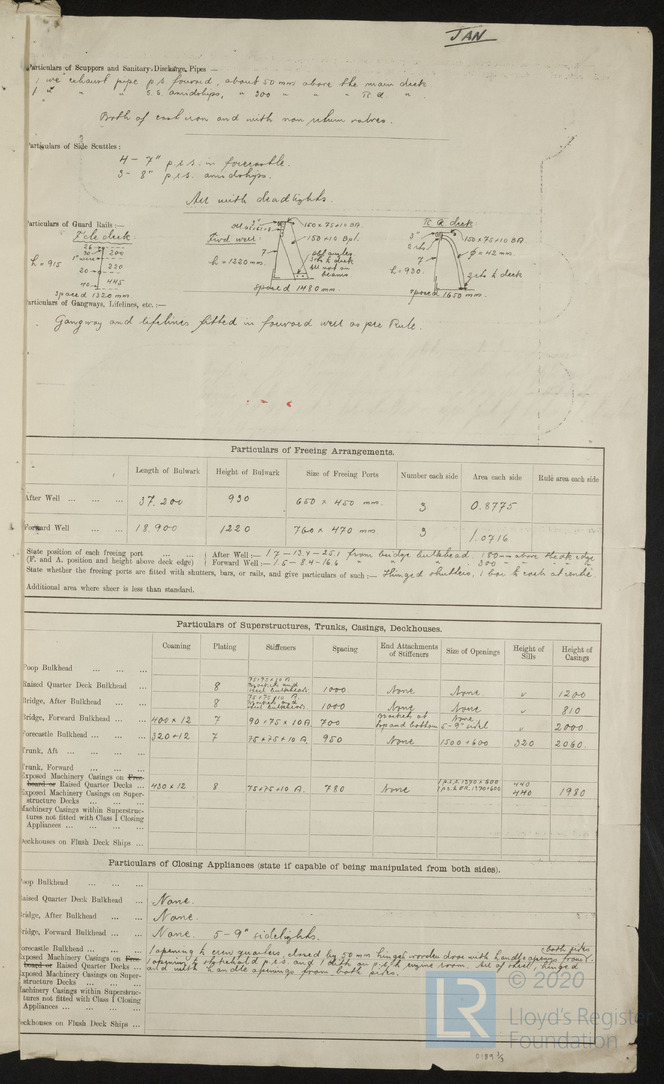 JAN
Particulars of Scuppers and Sanitary Discharge Pipes —
1 we exhaust pipe p.s. forward, about 50 mm above the main deck
1 " " " s.s. amidships, " 200 " " " R.Q. "
Both of cast iron and with non return valves.
Particulars of Side Scuttles:
4 – 7" p.&s. in forecastle.
3 – 8" p.&s. amidships.
All with deadlights.
Particulars of Guard Rails:—
F'cle deck: Fwd well: R.Q. deck:
h = 915 h = 1220 mm. h = 930.
26 30 200
1" wire
20 220
40 445
3" 150×75×10 BA
150×10 Bpl.
7
3" 150×75×10 BA
ϕ = 42 mm.
7
spaced 1320 mm spaced 1480 mm. spaced 1650 mm.
Particulars of Gangways, Lifelines, etc.:—
Gangway and lifelines fitted in forward well as per Rule.
Particulars of Freeing Arrangements.
Length of Bulwark Height of Bulwark Size of Freeing Ports Number each side Area each side Rule area each side
After Well ... ... ... 37.200 930 650 × 450 mm. 3 0.8775
Forward Well ... ... 18.900 1220 760 × 470 mm 3 1.0716
State position of each freeing port ... ... After Well:— 1.7 – 13.4 – 25.1 from bridge bulkhead. 180 mm above deck edge
(F. and A. position and height above deck edge) Forward Well:— 1.5 – 8.4 – 16.6 " " " 300 " " " "
State whether the freeing ports are fitted with shutters, bars, or rails, and give particulars of such:— Hinged shutters, 1 bar to each at centre
Additional area where sheer is less than standard.
Particulars of Superstructures, Trunks, Casings, Deckhouses.
Coaming Plating Stiffeners Spacing End Attachments of Stiffeners Size of Openings Height of Sills Height of Casings
Poop Bulkhead ... ... ...
Raised Quarter Deck Bulkhead ... 8 75×75×10 A 1000 None None " 1200
Bridge, After Bulkhead ... ... 8 75×75×10 A 1000 None None " 810
Bridge, Forward Bulkhead ... ... 400 × 12 7 90×75×10 A. 700 Bracket at top and bottom None 5–9" sidel " 2000
Forecastle Bulkhead ... ... ... 320×12 7 75×75×10 A. 950 None 1500×600 320 2060
Trunk, Aft ... ... ... ...
Trunk, Forward ... ... ...
Exposed Machinery Casings on Freeboard or Raised Quarter Decks ... 430 × 12 8 75×75×10 A. 780 None 440 1980
Exposed Machinery Casings on Superstructure Decks ... ... ... 440
Machinery Casings within Superstructures not fitted with Class I Closing Appliances ... ... ... ...
Deckhouses on Flush Deck Ships ...
Particulars of Closing Appliances (state if capable of being manipulated from both sides).
Poop Bulkhead ... ... ...
Raised Quarter Deck Bulkhead ... None.
Bridge, After Bulkhead ... ... None.
Bridge, Forward Bulkhead ... ... None. 5–9" sidelights.
Forecastle Bulkhead ... ... ... 1 opening to crew quarters, closed by 50 mm hinged wooden door with handle openings from both sides
Exposed Machinery Casings on Freeboard or Raised Quarter Decks ... 1 opening to stokehold p.&s. and 1 ditto on p.s. to engine room. All of steel, hinged
and with handle openings from both sides.
Exposed Machinery Casings on Superstructure Decks ... ... ...
Machinery Casings within Superstructures not fitted with Class I Closing Appliances ... ... ... ...
Deckhouses on Flush Deck Ships ...
© 2020
LR
Lloyd's Register
Foundation